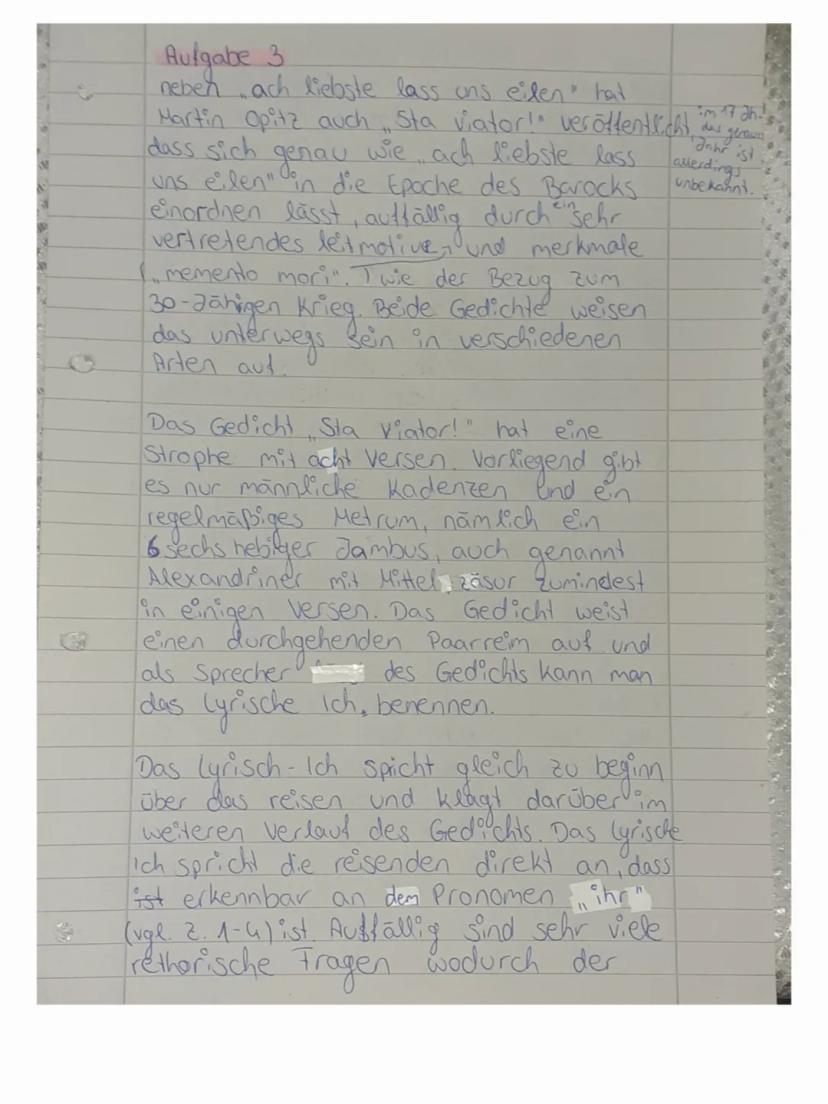 Aufgabe 3
neben „ach liebste lass uns eilen" hat
Martin Opitz auch „Sta viator!" veröffentlicht,
im 17 Jh.!
das genaue
Jahr ist
allerdings
unbekannt.
dass sich genau wie „ach liebste lass
uns eilen" in die Epoche des Barocks
einordnen lässt, auffällig durch ein sehr
vertretendes leitmotive, und merkmale
(„memento mori". wie der Bezug zum
30-Jährigen Krieg. Beide Gedichte weisen
das unterwegs sein in verschiedenen
Arten auf.
Das Gedicht „Sta viator!" hat eine
Strophe mit acht Versen. Vorliegend gibt
es nur männliche Kadenzen und ein
regelmäßiges Metrum, nämlich ein
6 sechshebiger Jambus, auch genannt
Alexandriner mit Mittel zäsur zumindest
in einigen Versen. Das Gedicht weist
einen durchgehenden Paarreim auf und
als Sprecher des Gedichts kann man
das lyrische Ich, benennen.
Das lyrisch-Ich spicht gleich zu beginn
über das reisen und klagt darüber im
weiteren Verlauf des Gedichts. Das lyrische
Ich spricht die reisenden direkt an, dass
ist erkennbar an dem Pronomen „ihr"
(vgl. Z. 1-4) ist. Auffällig sind sehr viele
rethorische Fragen wodurch der